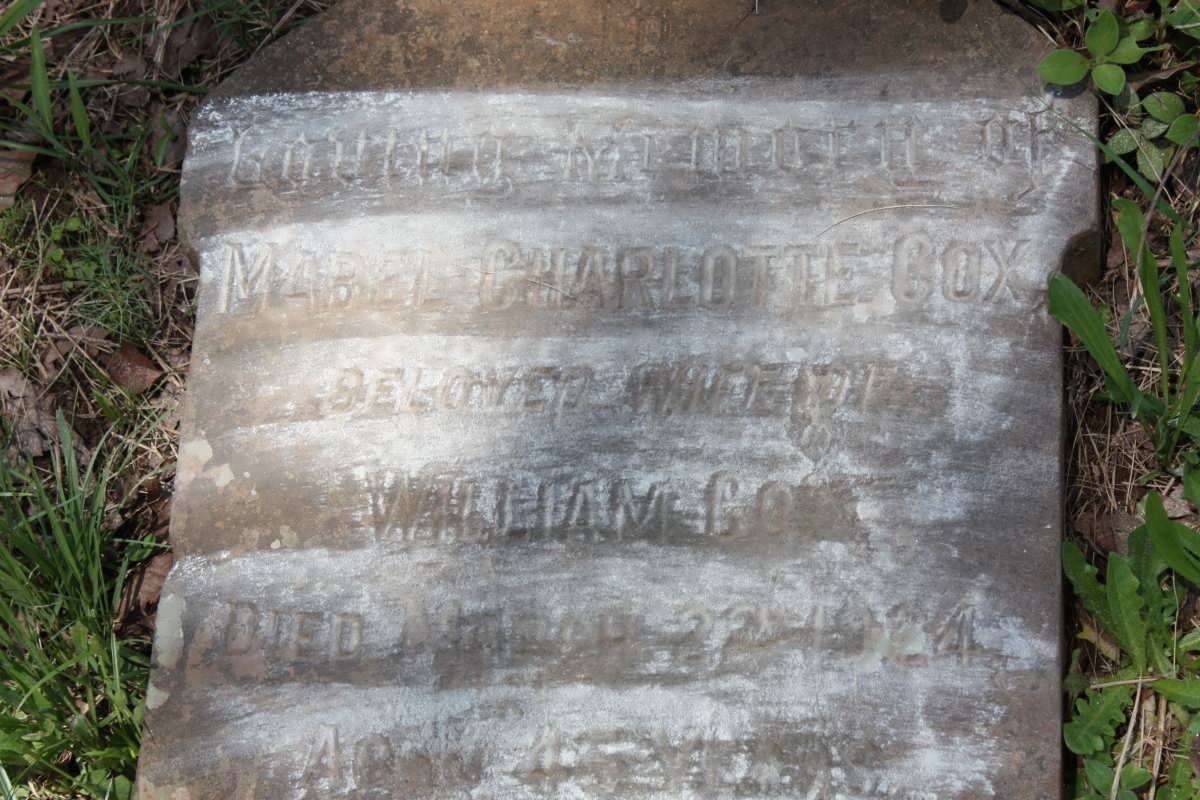 Loving Memory of
MABEL CHARLOTTE COX
BELOVED WIFE OF
WILLIAM COX
DIED MARCH 22ND 1924
AGED YEARS